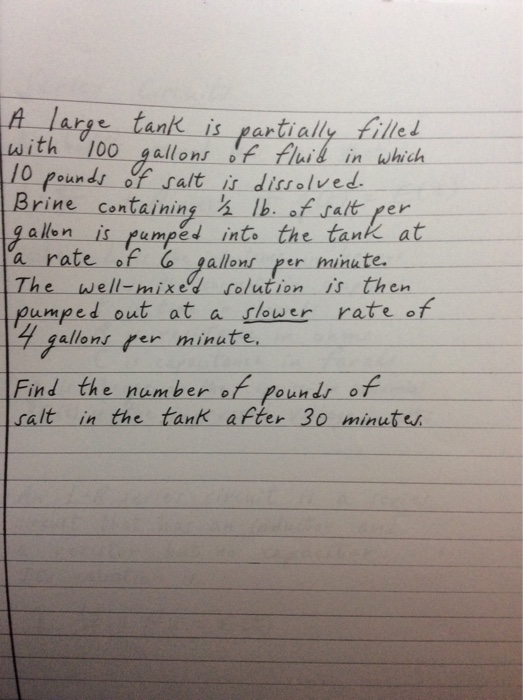 A large tank is partially filled
with 100 gallons of fluid in which
10 pounds of salt is dissolved.
Brine containing ½ lb. of salt per
gallon is pumped into the tank at
a rate of 6 gallons per minute.
The well-mixed solution is then
pumped out at a slower rate of
4 gallons per minute.
Find the number of pounds of
salt in the tank after 30 minutes.